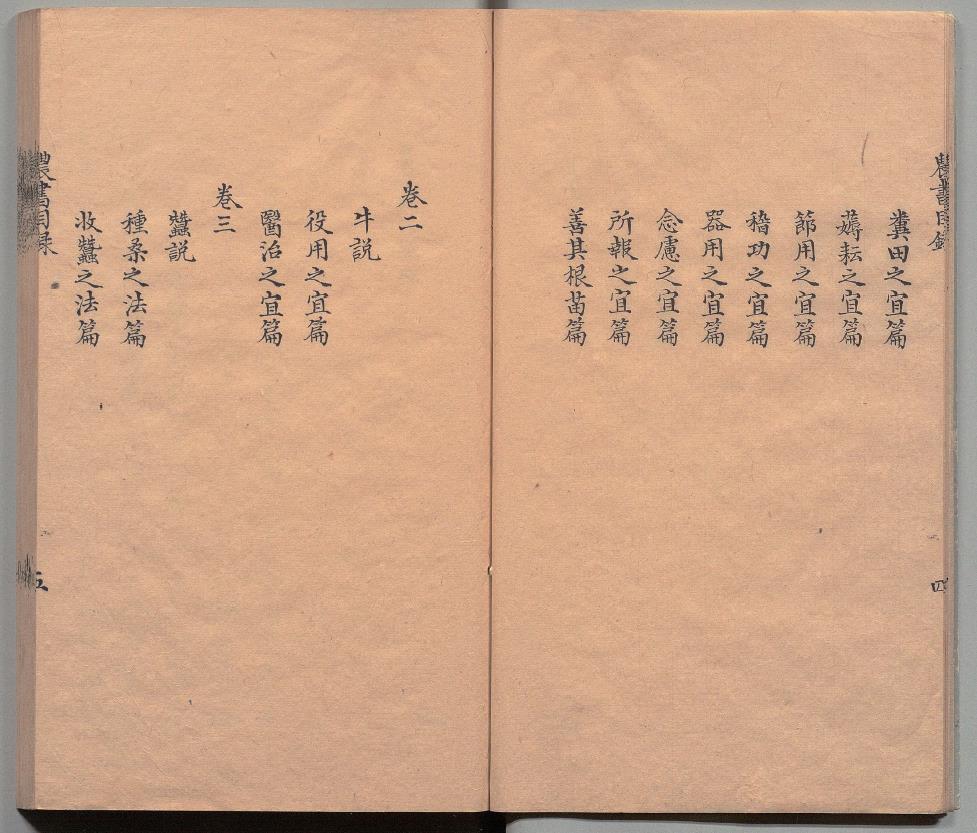 農書目錄
糞田之宜篇
薅耘之宜篇
節用之宜篇
稽功之宜篇
器用之宜篇
念慮之宜篇
所報之宜篇
善其根苗篇
四
卷二
牛説
役用之宜篇
醫治之宜篇
卷三
蠶説
種桑之法篇
收蠶之法篇
農書目録
五